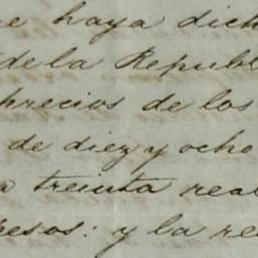 haya dich
de la Republ
precios de los
de diez y ocho
treinta real
pesos: y la re